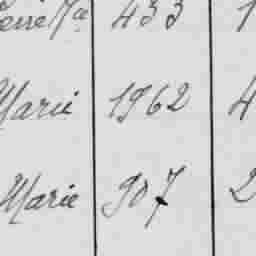 433 1
Marie 1962 4
Marie 907 2